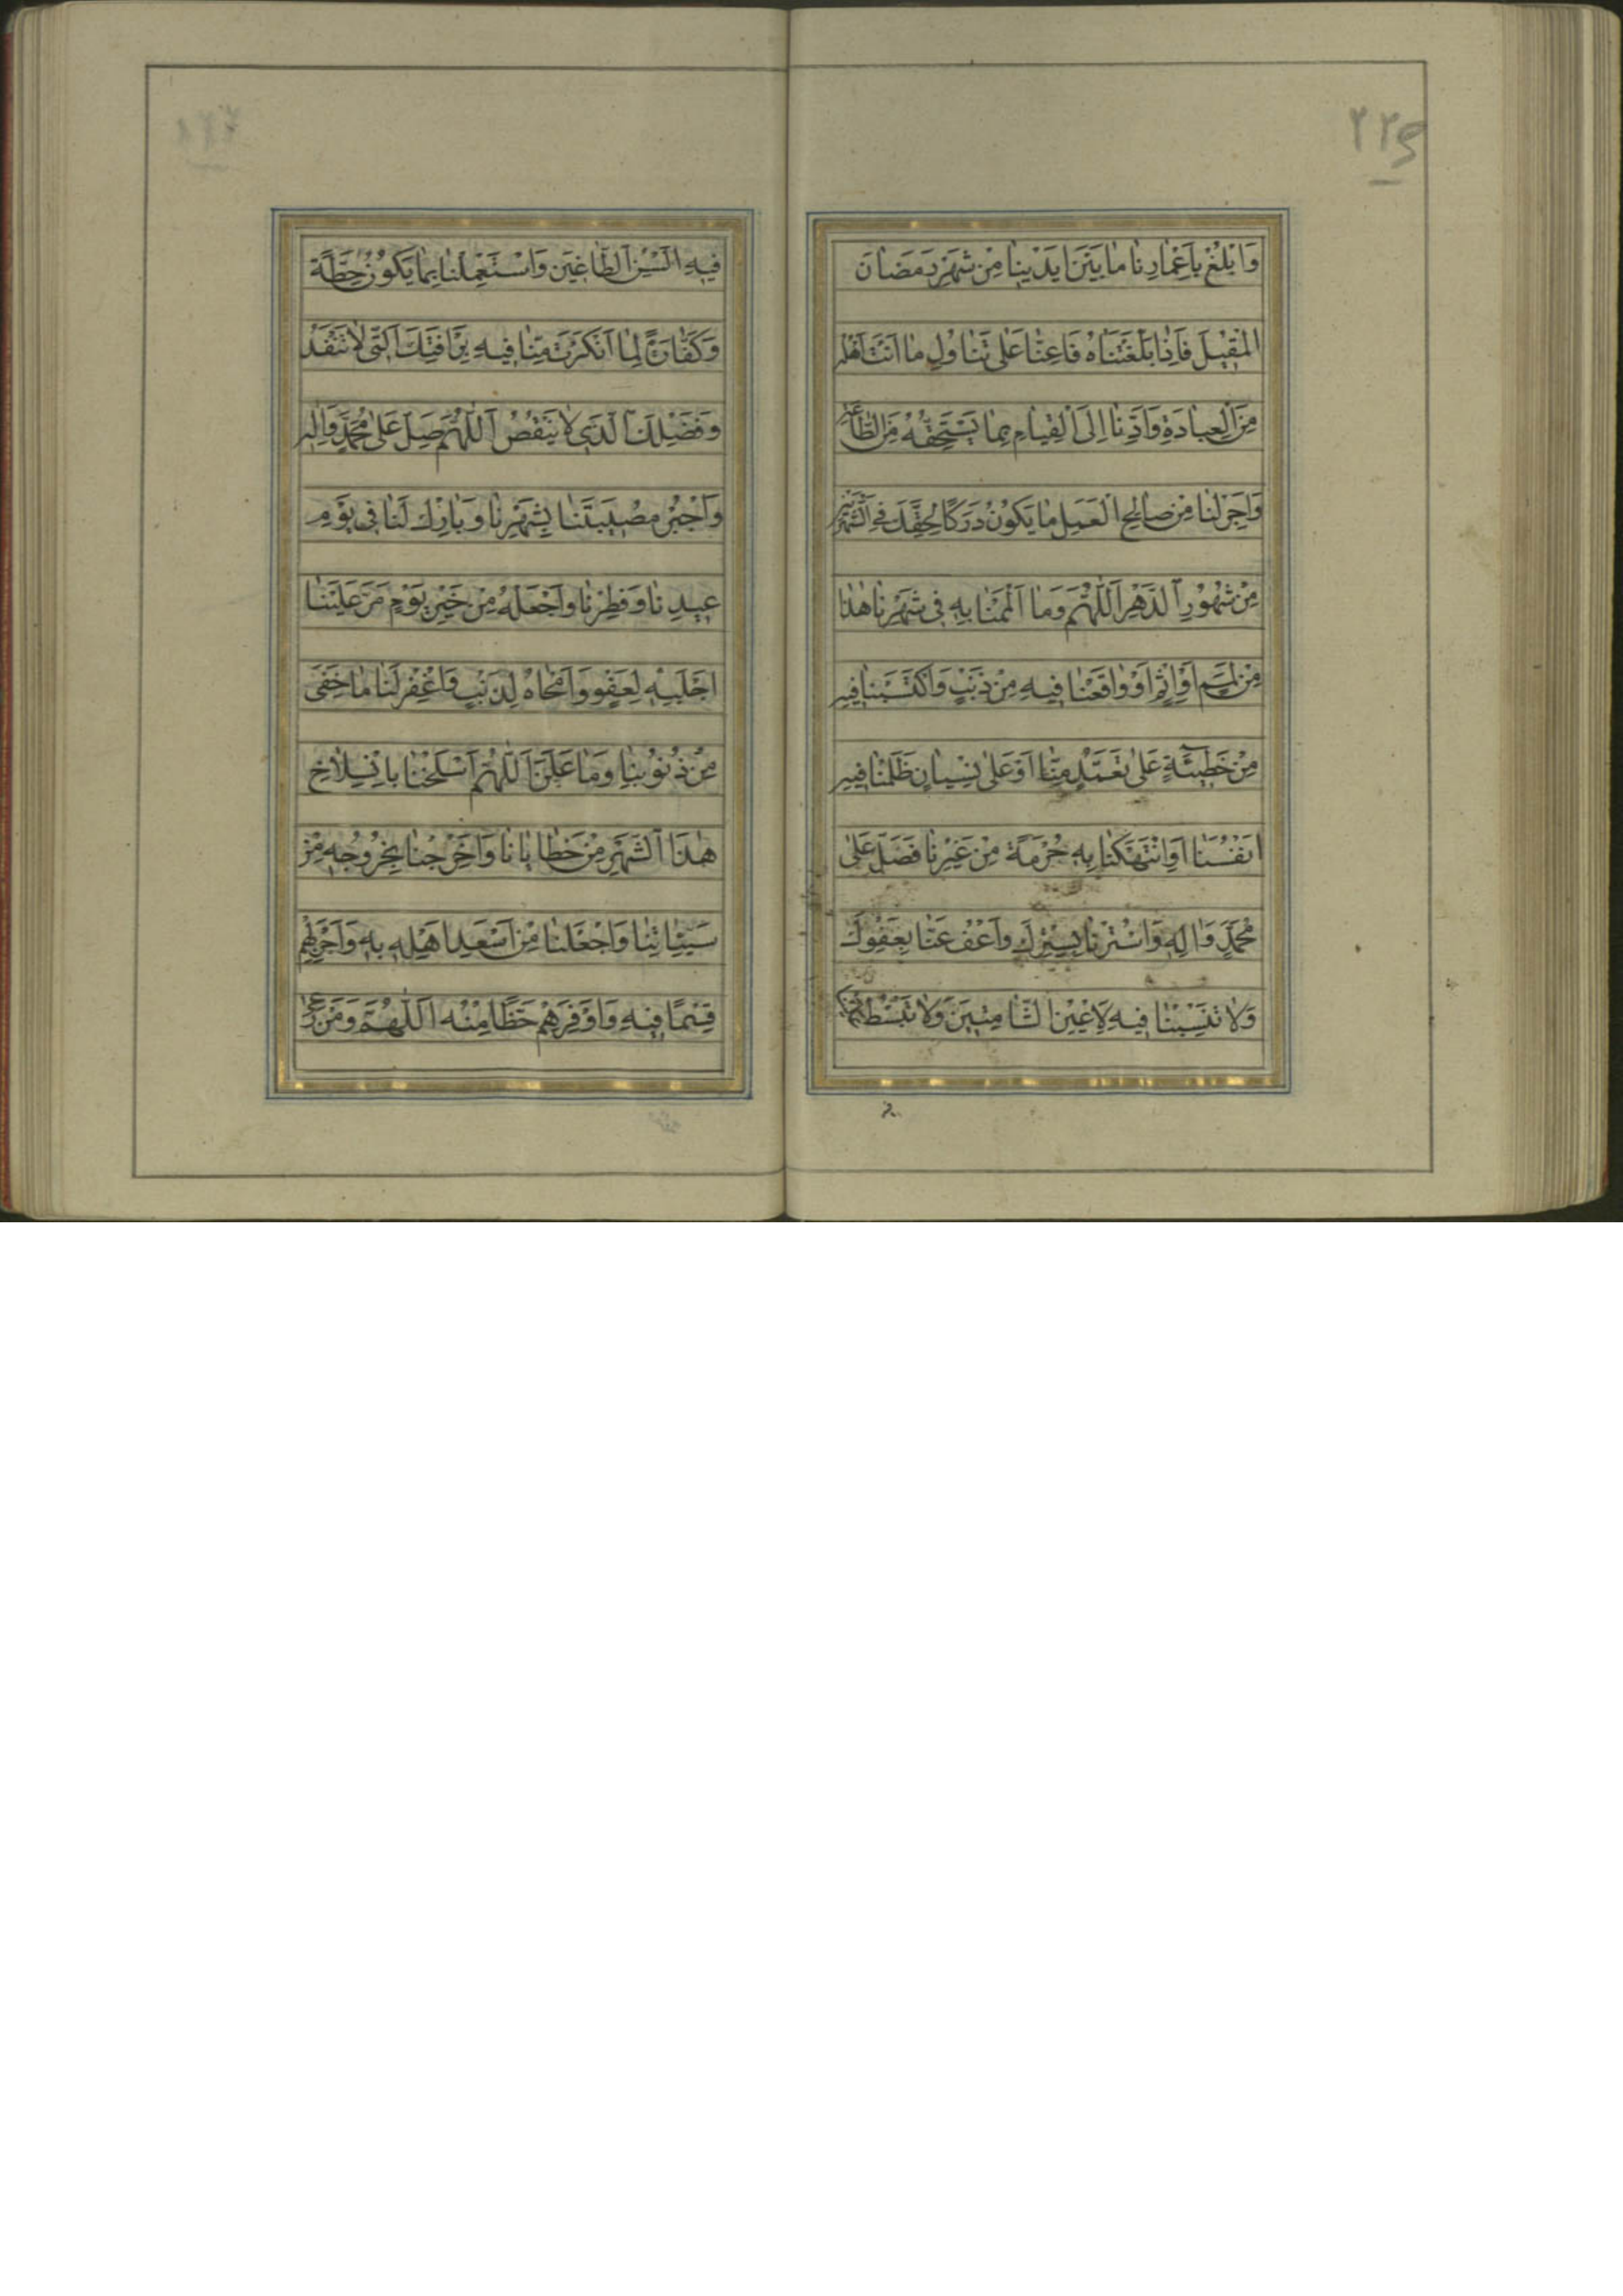 ٢٢٥
وَابْلُغْ بِاَعْمٰارِنٰا مٰا بَيْنَ اَيْدٖينٰا مِنْ شَهْرِ رَمَضٰانَ
الْمُقْبِلَ فَاِذٰا بَلَّغْتَنٰاهُ فَاَعِنّٰا عَلٰى تَنٰاوُلِ مٰا اَنْتَ اَهْلُهُ
مِنَ الْعِبٰادَةِ وَاَدِّنٰا اِلَى الْقِيٰامِ بِمٰا يَسْتَحِقُّهُ مِنَ الطّٰاعَةِ
وَاَجْرِ لَنٰا مِنْ صٰالِحِ الْعَمَلِ مٰا يَكُونُ دَرَكًا لِحَقِّكَ فِى الشَّهْرَيْنِ
مِنْ شُهُوْرِ الدَّهْرِ اَللّٰهُمَّ وَمٰا اَلْمَمْنٰا بِهٖ فٖى شَهْرِنٰا هٰذٰا
مِنْ لَمَمٍ اَوْ اِثْمٍ اَوْ وٰاقَعْنٰا فٖيهِ مِنْ ذَنْبٍ وَاكْتَسَبْنٰا فٖيهِ
مِنْ خَطٖيئَةٍ عَلٰى تَعَمُّدٍ مِنّٰا اَوْ عَلٰى نِسْيٰانٍ ظَلَمْنٰا فٖيهِ
اَنْفُسَنٰا اَوِ انْتَهَكْنٰا بِهٖ حُرْمَةً مِنْ غَيْرِنٰا فَصَلِّ عَلٰى
مُحَمَّدٍ وَاٰلِهٖ وَاسْتُرْنٰا بِسِتْرِكَ وَاعْفُ عَنّٰا بِعَفْوِكَ
وَلٰا تَنْصِبْنٰا فٖيهِ لِاَعْيُنِ الشّٰامِتٖينَ وَلٰا تَبْسُطْ عَلَيْنٰا
فٖيهِ اَلْسُنَ الطّٰاغٖينَ وَاسْتَعْمِلْنٰا بِمٰا يَكُوْنُ حِطَّةً
وَكَفّٰارَةً لِمٰا اَنْكَرْتَ مِنّٰا فٖيهِ بِرَأْفَتِكَ الَّتٖى لٰا تَنْفَدُ
وَفَضْلِكَ الَّذٖى لٰا يَنْقُصُ اَللّٰهُمَّ صَلِّ عَلٰى مُحَمَّدٍ وَاٰلِهٖ
وَاجْبُرْ مُصٖيبَتَنٰا بِشَهْرِنٰا وَبٰارِكْ لَنٰا فٖى يَوْمِ
عٖيدِنٰا وَفِطْرِنٰا وَاجْعَلْهُ مِنْ خَيْرِ يَوْمٍ مَرَّ عَلَيْنٰا
اَجْلَبِهٖ لِعَفْوٍ وَاَمْحٰاهُ لِذَنْبٍ وَاغْفِرْ لَنٰا مٰا خَفِىَ
مِنْ ذُنُوْبِنٰا وَمٰا عَلَنَ اَللّٰهُمَّ اسْلَخْنٰا بِانْسِلٰاخِ
هٰذَا الشَّهْرِ مِنْ خَطٰايٰانٰا وَاَخْرِجْنٰا بِخُرُوْجِهٖ مِنْ
سَيِّئٰاتِنٰا وَاجْعَلْنٰا مِنْ اَسْعَدِ اَهْلِهٖ بِهٖ وَاَجْزَلِهِمْ
قِسْمًا فٖيهِ وَاَوْفَرِهِمْ حَظًّا مِنْهُ اَللّٰهُمَّ وَمَنْ رَعٰى